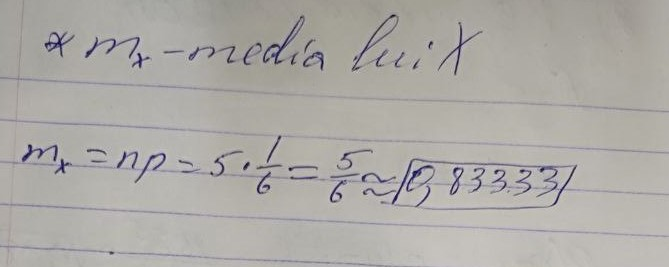 * mₓ - media lui X
mₓ = np = 5 · 1/6 = 5/6 ≈ 0,83333